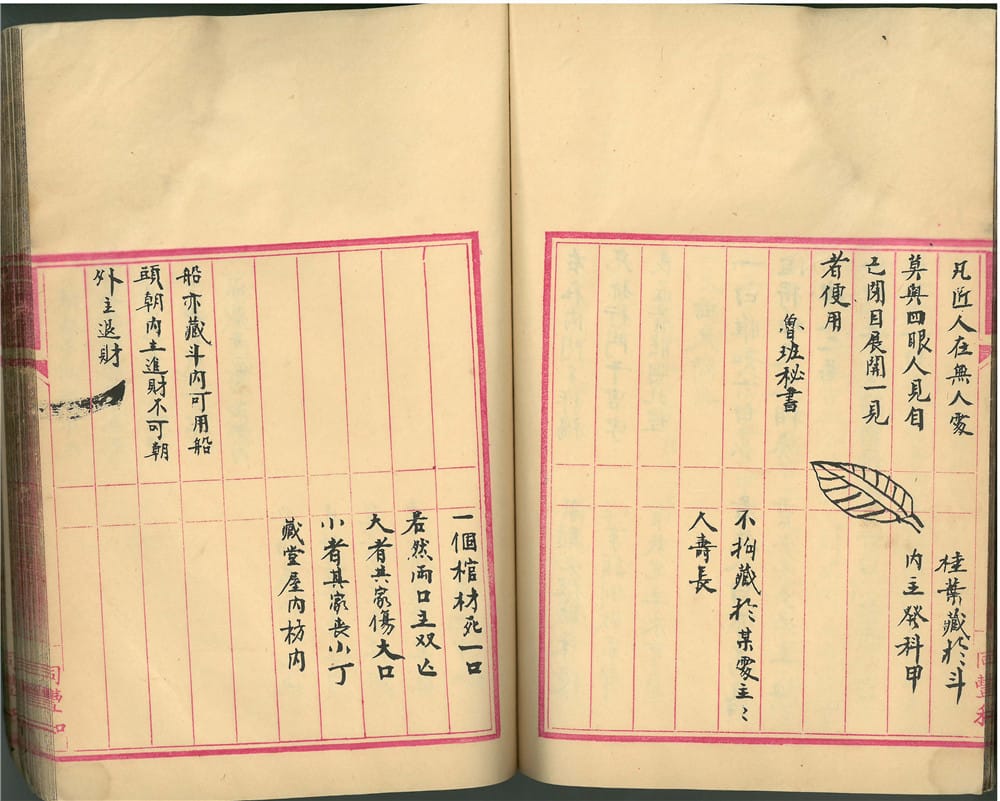 凡匠人在無人處
莫與四眼人見自
己閉目展開一見
者便用
魯班秘書
桂葉藏於斗
內主發科甲
不拘藏於某處主〻
人壽長
一個棺材死一口
若然兩口主双亡
大者其家傷大口
小者其家喪小丁
藏堂屋內枋內
船亦藏斗內可用船
頭朝內主進財不可朝
外主退財